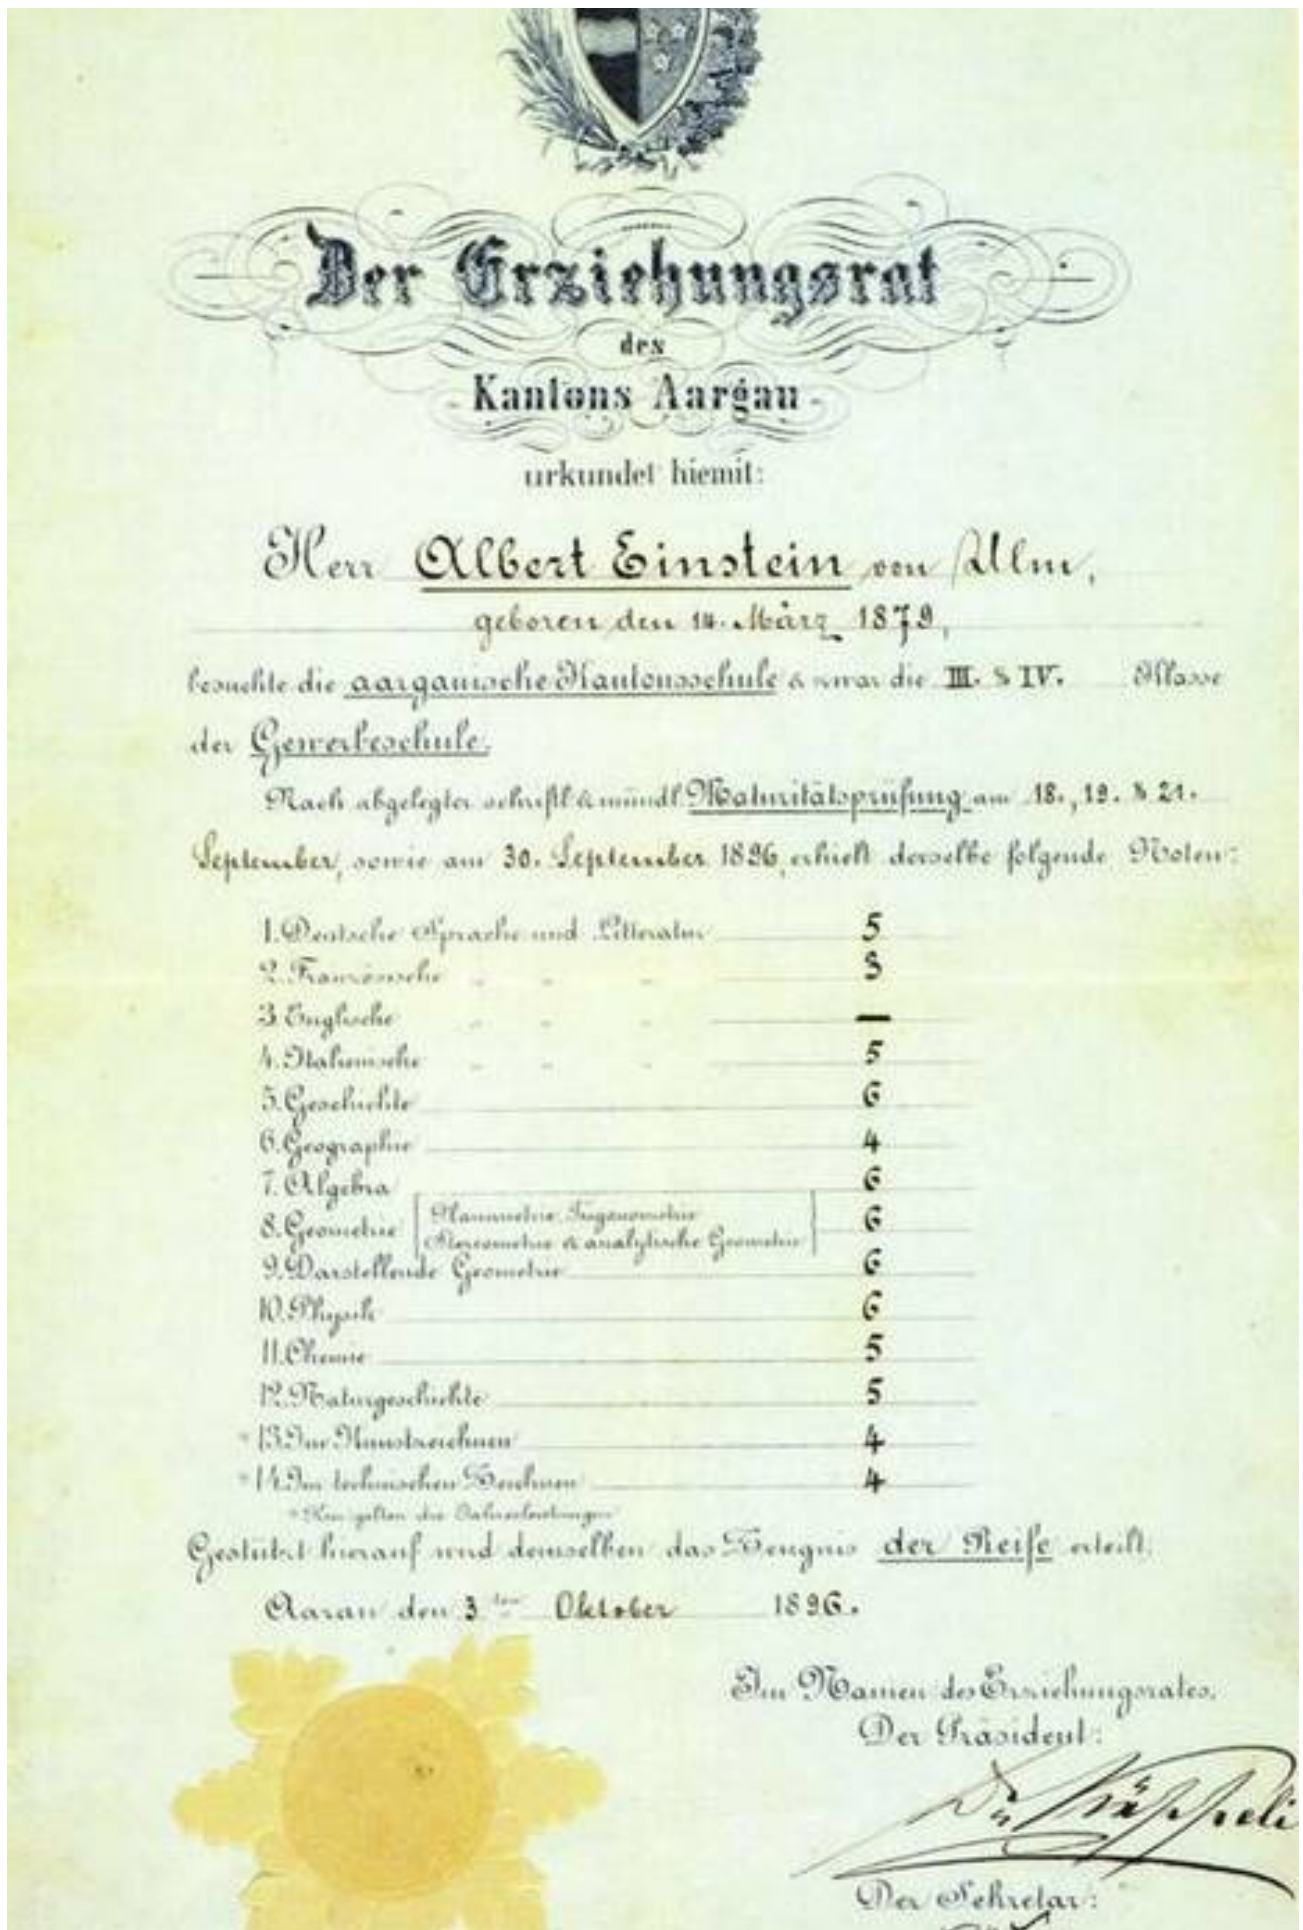 Der Erziehungsrat
des
Kantons Aargau
urkundet hiemit:
Herr Albert Einstein von Ulm,
geboren den 14. März 1879,
besuchte die aargauische Kantonsschule & zwar die III. & IV. Klasse
der Gewerbeschule.
Nach abgelegter schriftl. & mündl. Maturitätsprüfung am 18., 19. & 21.
September, sowie am 30. September 1896, erhielt derselbe folgende Noten:
1. Deutsche Sprache und Litteratur 5
2. Französische „ „ „ 3
3. Englische „ „ „ —
4. Italienische „ „ „ 5
5. Geschichte 6
6. Geographie 4
7. Algebra 6
8. Geometrie [Planimetrie, Trigonometrie
Stereometrie & analytische Geometrie] 6
9. Darstellende Geometrie 6
10. Physik 6
11. Chemie 5
12. Naturgeschichte 5
* 13. Im Kunstzeichnen 4
* 14. Im technischen Zeichnen 4
* Hier gelten die Jahresleistungen
Gestützt hierauf wird demselben das Zeugnis der Reife erteilt.
Aarau den 3ten Oktober 1896.
Im Namen des Erziehungsrates,
Der Präsident:
Dr. Käppeli
Der Sekretär: